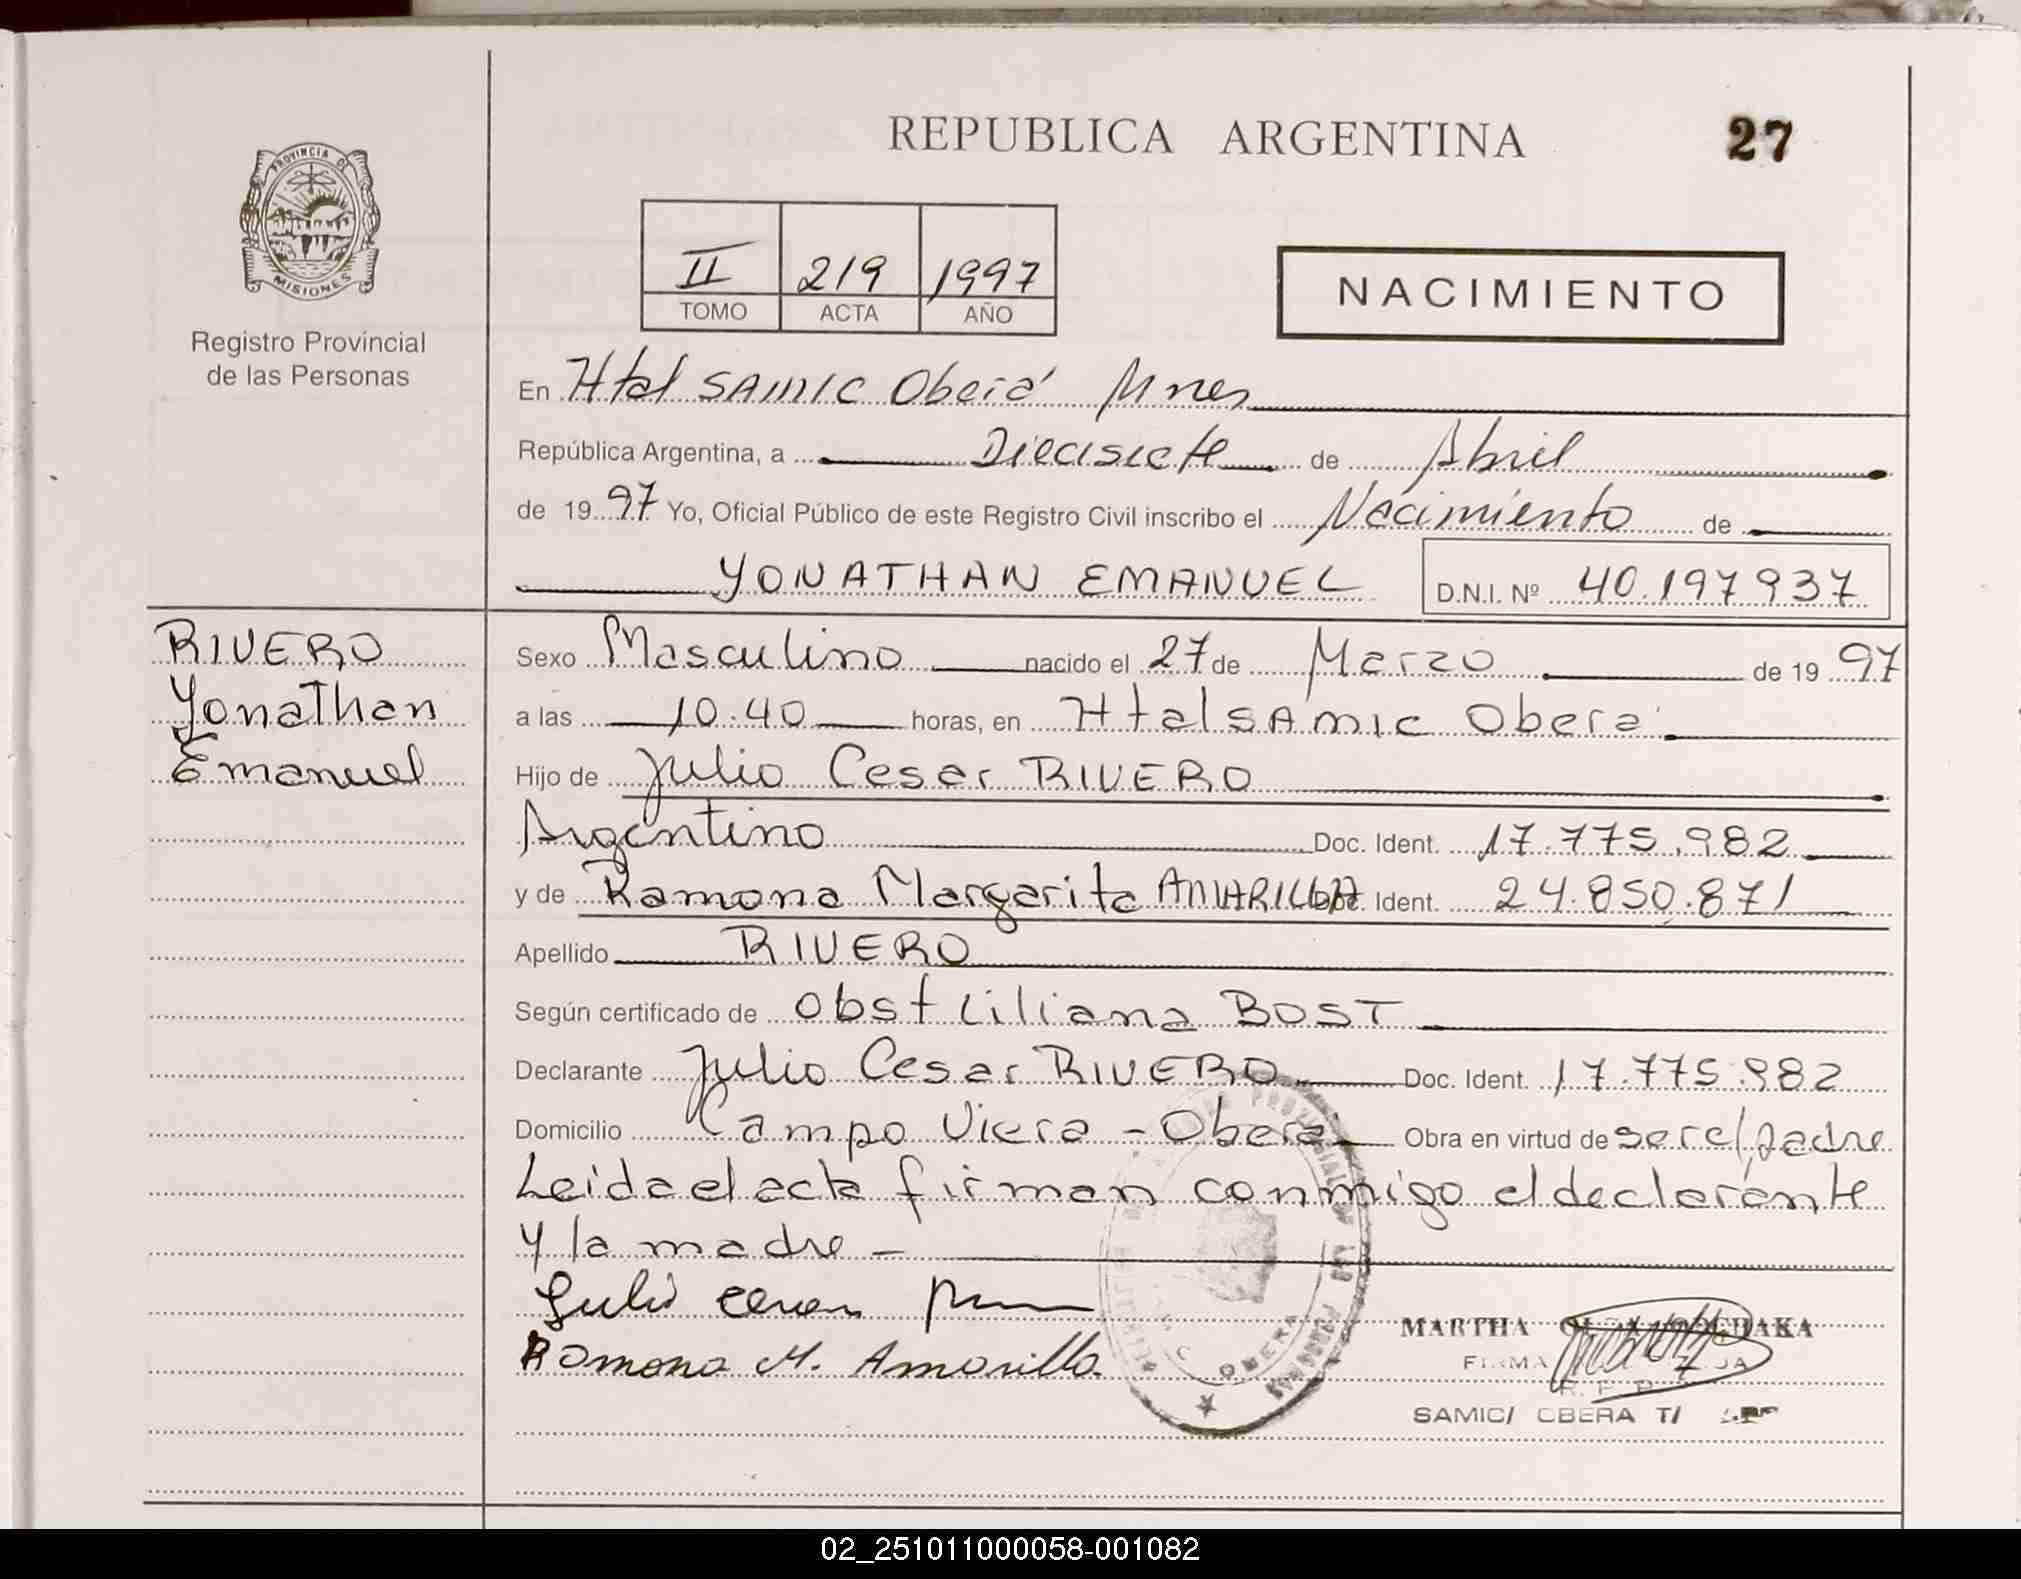 REPUBLICA ARGENTINA
27
PROVINCIA DE
MISIONES
Registro Provincial
de las Personas
II 219 1997
TOMO ACTA AÑO
NACIMIENTO
En Htal SAMIC Oberá Mnes
República Argentina, a Diecisiete de Abril
de 1997 Yo, Oficial Público de este Registro Civil inscribo el Nacimiento de
YONATHAN EMANUEL D.N.I. Nº 40.197937
RIVERO
Yonathan
Emanuel
Sexo Masculino nacido el 27 de Marzo de 1997
a las 10.40 horas, en Htal SAMIC Oberá
Hijo de Julio Cesar RIVERO
Argentino Doc. Ident. 17.775.982
y de Ramona Margarita AMARILLA Doc. Ident. 24.850.871
Apellido RIVERO
Según certificado de Obst Liliana BOST
Declarante Julio Cesar RIVERO Doc. Ident. 17.775.982
Domicilio Campo Viera - Oberá Obra en virtud de ser el padre
Leida el acta firman conmigo el declarante
y la madre -
Julio Cesar
Ramona M. Amarilla.
OBERA
MARTHA
FIRMA
SAMIC/ OBERA T/
02_251011000058-001082